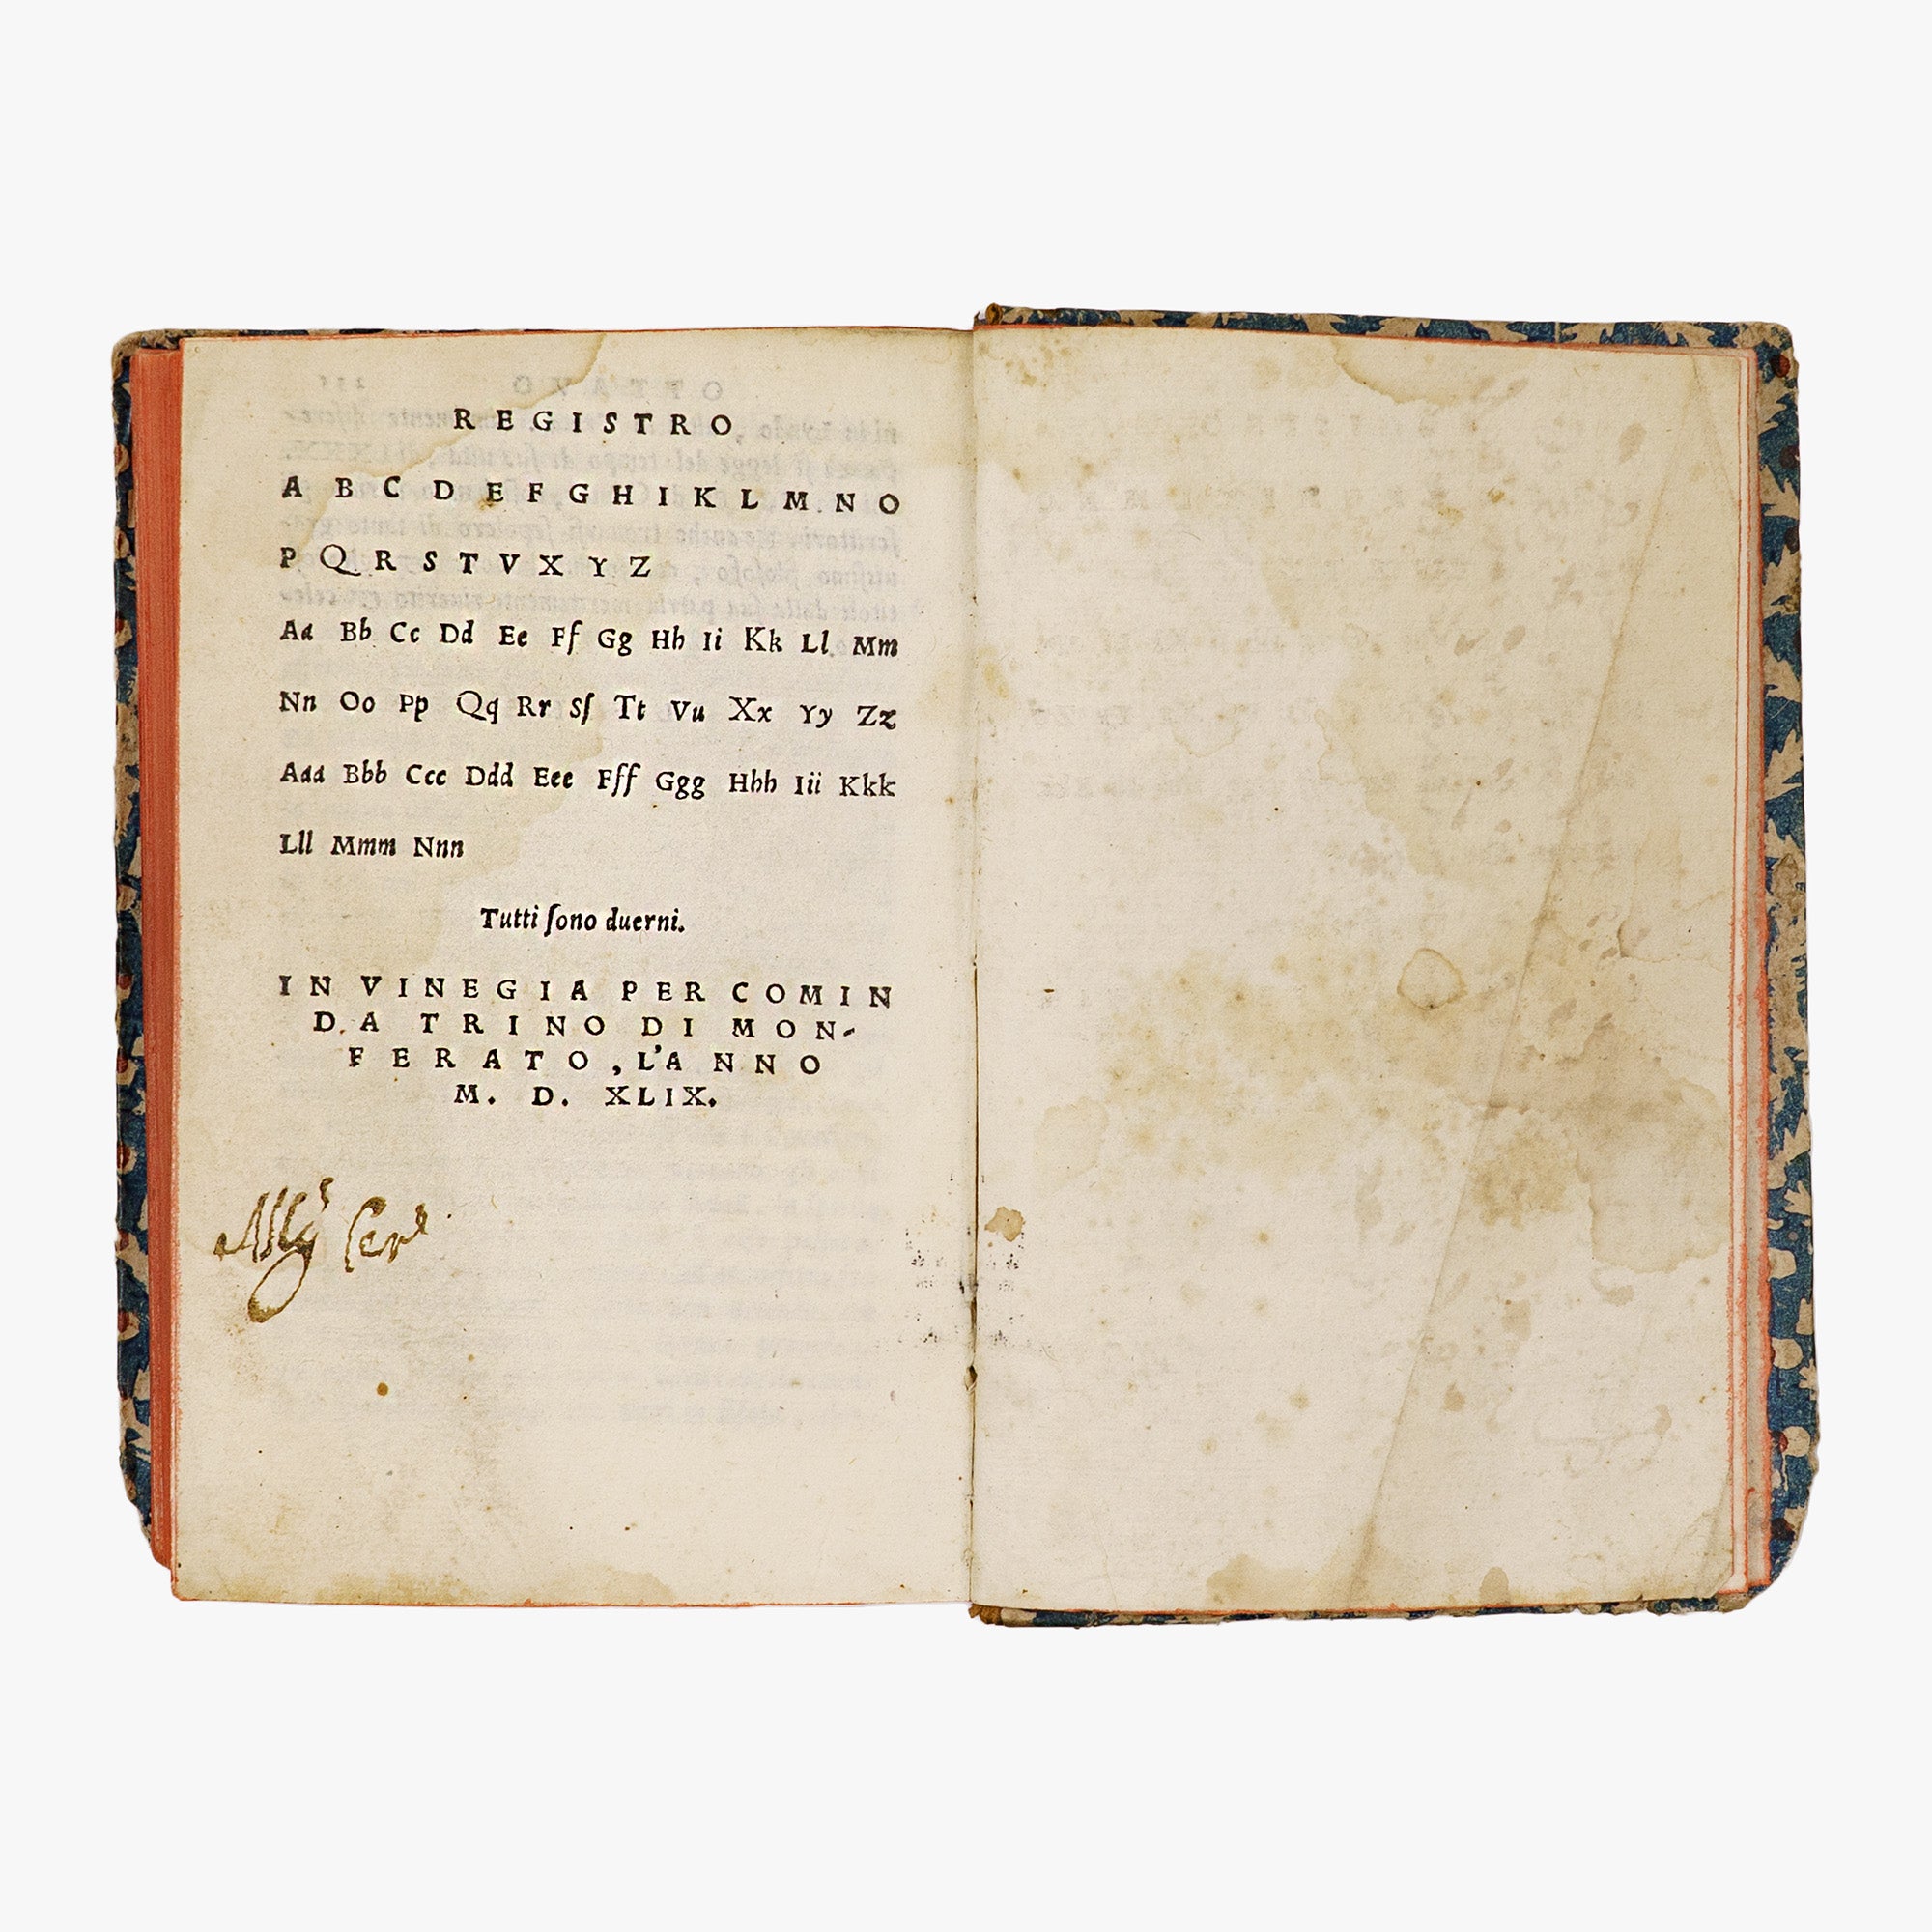 REGISTRO
A B C D E F G H I K L M N O
P Q R S T V X Y Z
Aa Bb Cc Dd Ee Ff Gg Hh Ii Kk Ll Mm
Nn Oo Pp Qq Rr Sſ Tt Vu Xx Yy Zz
Aaa Bbb Ccc Ddd Eee Fff Ggg Hhh Iii Kkk
Lll Mmm Nnn
Tutti ſono duerni.
IN VINEGIA PER COMIN
DA TRINO DI MON-
FERATO, L'ANNO
M. D. XLIX.